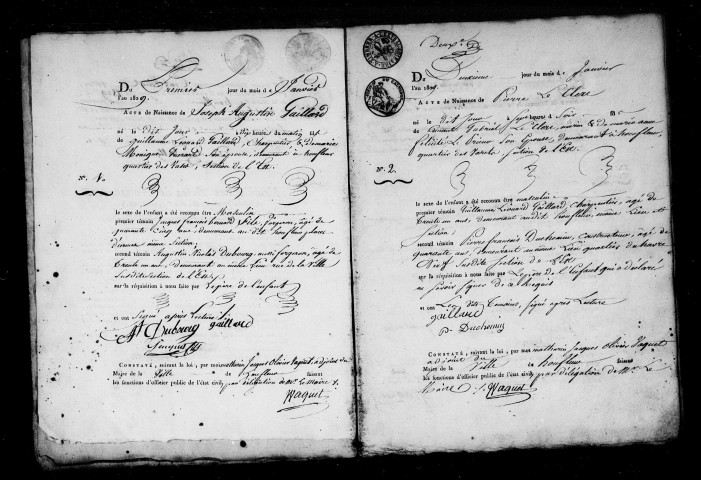 Du Premier jour du mois de Janvier
l'an 1809.
ACTE de Naissance de Joseph Augustin Gaillard
né le dit Jour à dix heures du matin
de Guillaume Léonard Gaillard, Charpentier & de Marie
Monique son épouse, demeurant à honfleur
quartier des section de l'Est.
N°. 1.
le sexe de l'enfant a été reconnu être Masculin
premier témoin Jacques françois fils, forgeron, âgé de
quarante Cinq ans, demeurant au dit honfleur place
même section;
second témoin Augustin Nicolas Dubourg, aussi forgeron, âgé de
trente un ans, demeurant au même lieu rue de la Ville
Susdite Section de l'Est
sur la réquisition à nous faite par le père de l'enfant
et ont Signé après Lecture
At Dubourg gaillard
CONSTATÉ, suivant la loi, par moi mathurin Jacques Olivier Vaquet, adjoint du
Maire de la Ville de honfleur faisant
les fonctions d'officier public de l'état civil, par délégation de Mr. le Maire
Vaquet
Deux
Du Deuxieme jour du mois de Janvier
l'an 1809.
ACTE de Naissance de Pierre Le Clerc
né le dit Jour à heures du Soir
de Gabriel Le Clerc, marin & de marie anne
félicité son Epouse, demeurant à honfleur
quartier des section de l'Est.
N°. 2.
le sexe de l'enfant a été reconnu être masculin
premier témoin Guillaume Léonard Gaillard, Charpentier, âgé de
trente un ans, demeurant audit honfleur, même Lieu et
Section;
second témoin Pierre françois Duchemin, Constructeur, âgé de
quarante ans, demeurant même Lieu quartier du havre
Neuf Susdite Section de l'Est
sur la réquisition à nous faite par Le père de l'enfant qui a déclaré
ne savoir signer de ce requis
et ont Les dits témoins, signé après Lecture
gaillard
p. Duchemin
CONSTATÉ, suivant la loi, par moi mathurin Jacques Olivier Vaquet
adjoint du
Maire de la Ville de honfleur faisant
les fonctions d'officier public de l'état civil, par délégation de Mr. Le
Maire. Vaquet